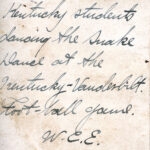 Kentucky students
dancing the Snake
Dance at the
Kentucky-Vanderbilt.
Foot-ball game.
W.E.E.